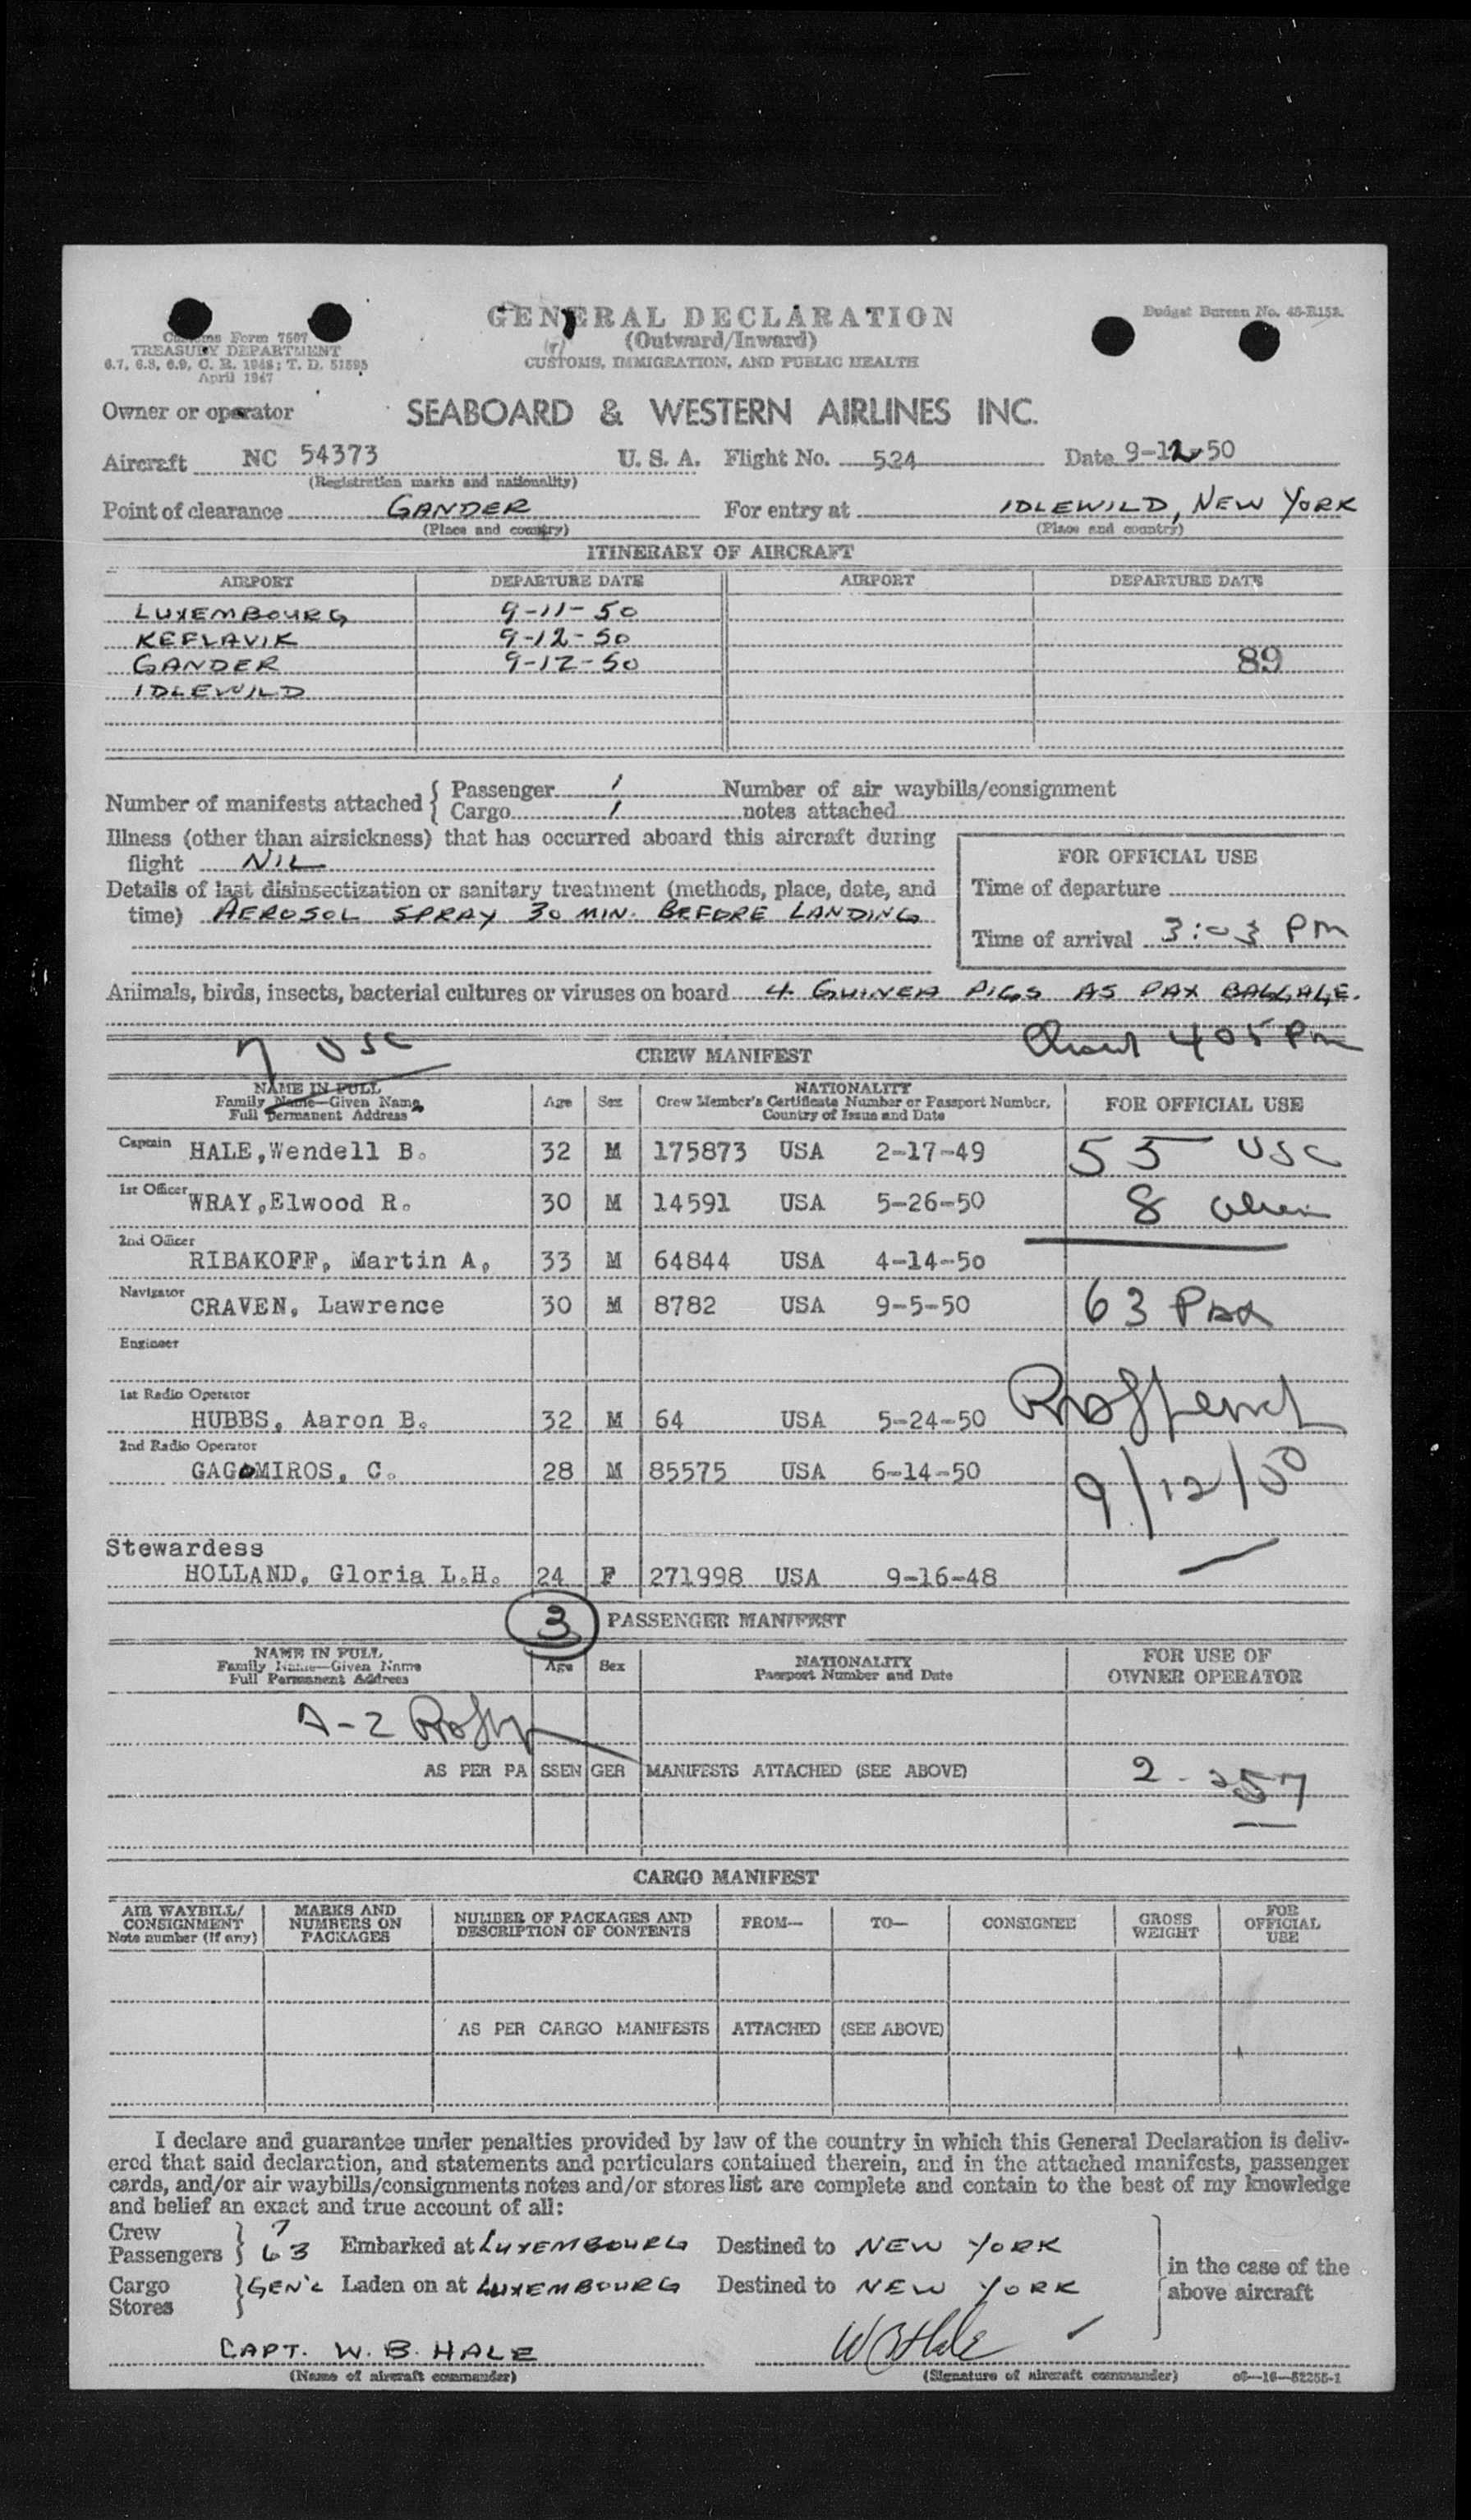 GENERAL DECLARATION
(Outward/Inward)
CUSTOMS, IMMIGRATION, AND PUBLIC HEALTH
Customs Form 7507
TREASURY DEPARTMENT
6.7, 6.8, 6.9, C. R. 1948; T. D. 51595
April 1947
Budget Bureau No. 48-R152.
Owner or operator SEABOARD & WESTERN AIRLINES INC.
Aircraft NC 54373 U. S. A. Flight No. 524 Date 9-12-50
(Registration marks and nationality)
Point of clearance GANDER For entry at IDLEWILD, NEW YORK
(Place and country) (Place and country)
ITINERARY OF AIRCRAFT
AIRPORT DEPARTURE DATE AIRPORT DEPARTURE DATE
LUXEMBOURG 9-11-50
KEFLAVIK 9-12-50
GANDER 9-12-50 89
IDLEWILD
Number of manifests attached { Passenger 1 Number of air waybills/consignment
Cargo 1 notes attached
Illness (other than airsickness) that has occurred aboard this aircraft during
flight NIL
Details of last disinsectization or sanitary treatment (methods, place, date, and
time) AEROSOL SPRAY 30 MIN. BEFORE LANDING
FOR OFFICIAL USE
Time of departure
Time of arrival 3:03 PM
Animals, birds, insects, bacterial cultures or viruses on board 4 GUINEA PIGS AS PAX BAGGAGE.
7 USC CREW MANIFEST 405 Pm
NAME IN FULL
Family Name—Given Name
Full Permanent Address
Age Sex
NATIONALITY
Crew Member's Certificate Number or Passport Number,
Country of Issue and Date
FOR OFFICIAL USE
Captain HALE,Wendell B. 32 M 175873 USA 2-17-49 55 USC
1st Officer WRAY,Elwood R. 30 M 14591 USA 5-26-50 8 alien
2nd Officer
RIBAKOFF, Martin A, 33 M 64844 USA 4-14-50
Navigator CRAVEN, Lawrence 30 M 8782 USA 9-5-50 63 Pax
Engineer
1st Radio Operator
HUBBS, Aaron B. 32 M 64 USA 5-24-50
2nd Radio Operator
GAGOMIROS, C. 28 M 85575 USA 6-14-50 9/12/50
Stewardess
HOLLAND, Gloria L.H. 24 F 271998 USA 9-16-48
3 PASSENGER MANIFEST
NAME IN FULL
Family Name—Given Name
Full Permanent Address
Age Sex
NATIONALITY
Passport Number and Date
FOR USE OF
OWNER OPERATOR
A-2
AS PER PASSENGER MANIFESTS ATTACHED (SEE ABOVE) 2-257
CARGO MANIFEST
AIR WAYBILL/
CONSIGNMENT
Note number (if any)
MARKS AND
NUMBERS ON
PACKAGES
NUMBER OF PACKAGES AND
DESCRIPTION OF CONTENTS
FROM— TO— CONSIGNEE
GROSS
WEIGHT
FOR
OFFICIAL
USE
AS PER CARGO MANIFESTS ATTACHED (SEE ABOVE)
I declare and guarantee under penalties provided by law of the country in which this General Declaration is deliv-
ered that said declaration, and statements and particulars contained therein, and in the attached manifests, passenger
cards, and/or air waybills/consignments notes and/or stores list are complete and contain to the best of my knowledge
and belief an exact and true account of all:
Crew } 7
Passengers } 63 Embarked at LUXEMBOURG Destined to NEW YORK
Cargo } GEN'L Laden on at LUXEMBOURG Destined to NEW YORK
Stores
in the case of the
above aircraft
CAPT. W. B. HALE WB Hale
(Name of aircraft commander) (Signature of aircraft commander) 06—16—52255-1